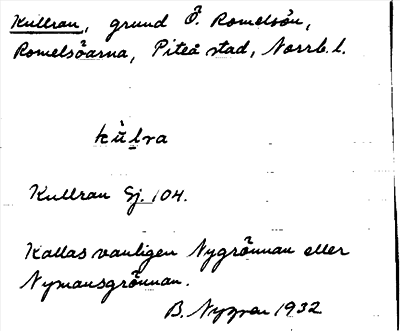 Kullran, grund Ö. Romelsön,
Romelsöarna, Piteå stad, Norrb. l.
kùlra
Kullran Sj. 104.
Kallas vanligen Nygrönnan eller
Nymansgrönnan.
B. Nygren 1932